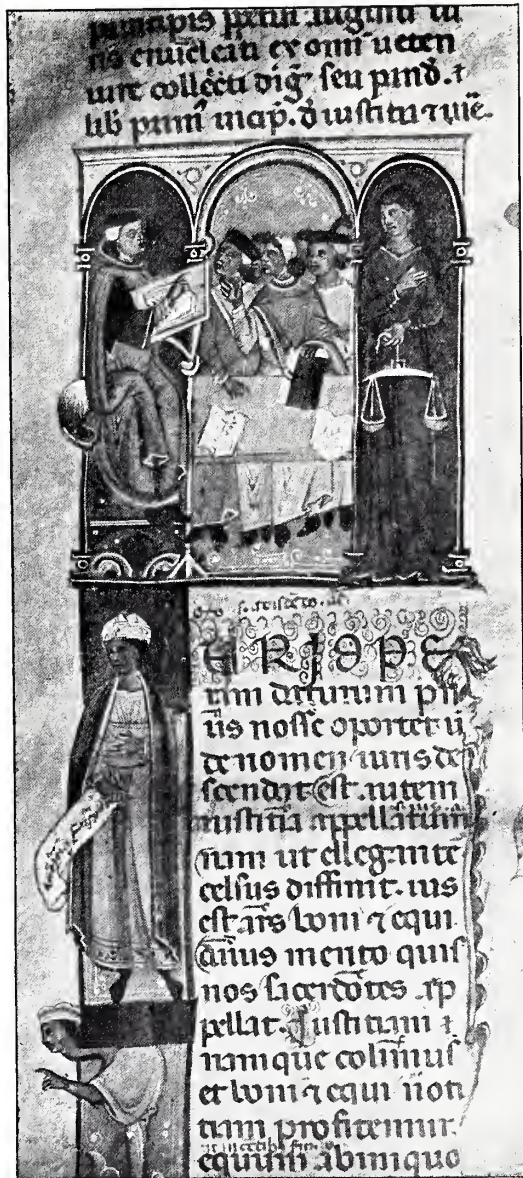 principis perpetui augusti iu
ris enucleati ex omi ueteri
iure collecti dig̅ seu pand. ⁊
lib prim̅ incip. d̅ iusticia ⁊ iure.
RI OPE
ram daturum p̅ri
us nosse oportet ū
de nomen iuris de
scendat. Est autem
iustitia appellatum
nam ut elleganter
celsus diffinit. ius
est ars boni ⁊ equi
cuius merito quis
nos sacerdotes ap
pellat. Iustitiam ⁊
namque colimus
et boni ⁊ equi noti
tiam profitemur.
equum ab iniquo